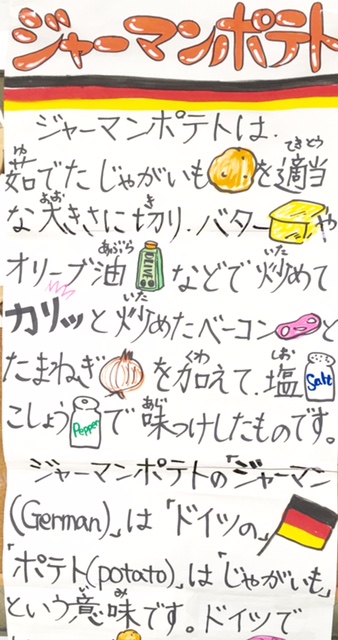 ジャーマンポテト
ジャーマンポテトは、
茹でたじゃがいもを適当
な大きさに切り、バターや
オリーブ油などで炒めて
カリッと炒めたベーコンと
たまねぎを加えて、塩
こしょうで味つけしたものです。
ジャーマンポテトの「ジャーマン
(German)」は「ドイツの」、
「ポテト(potato)」は「じゃがいも」
という意味です。ドイツで